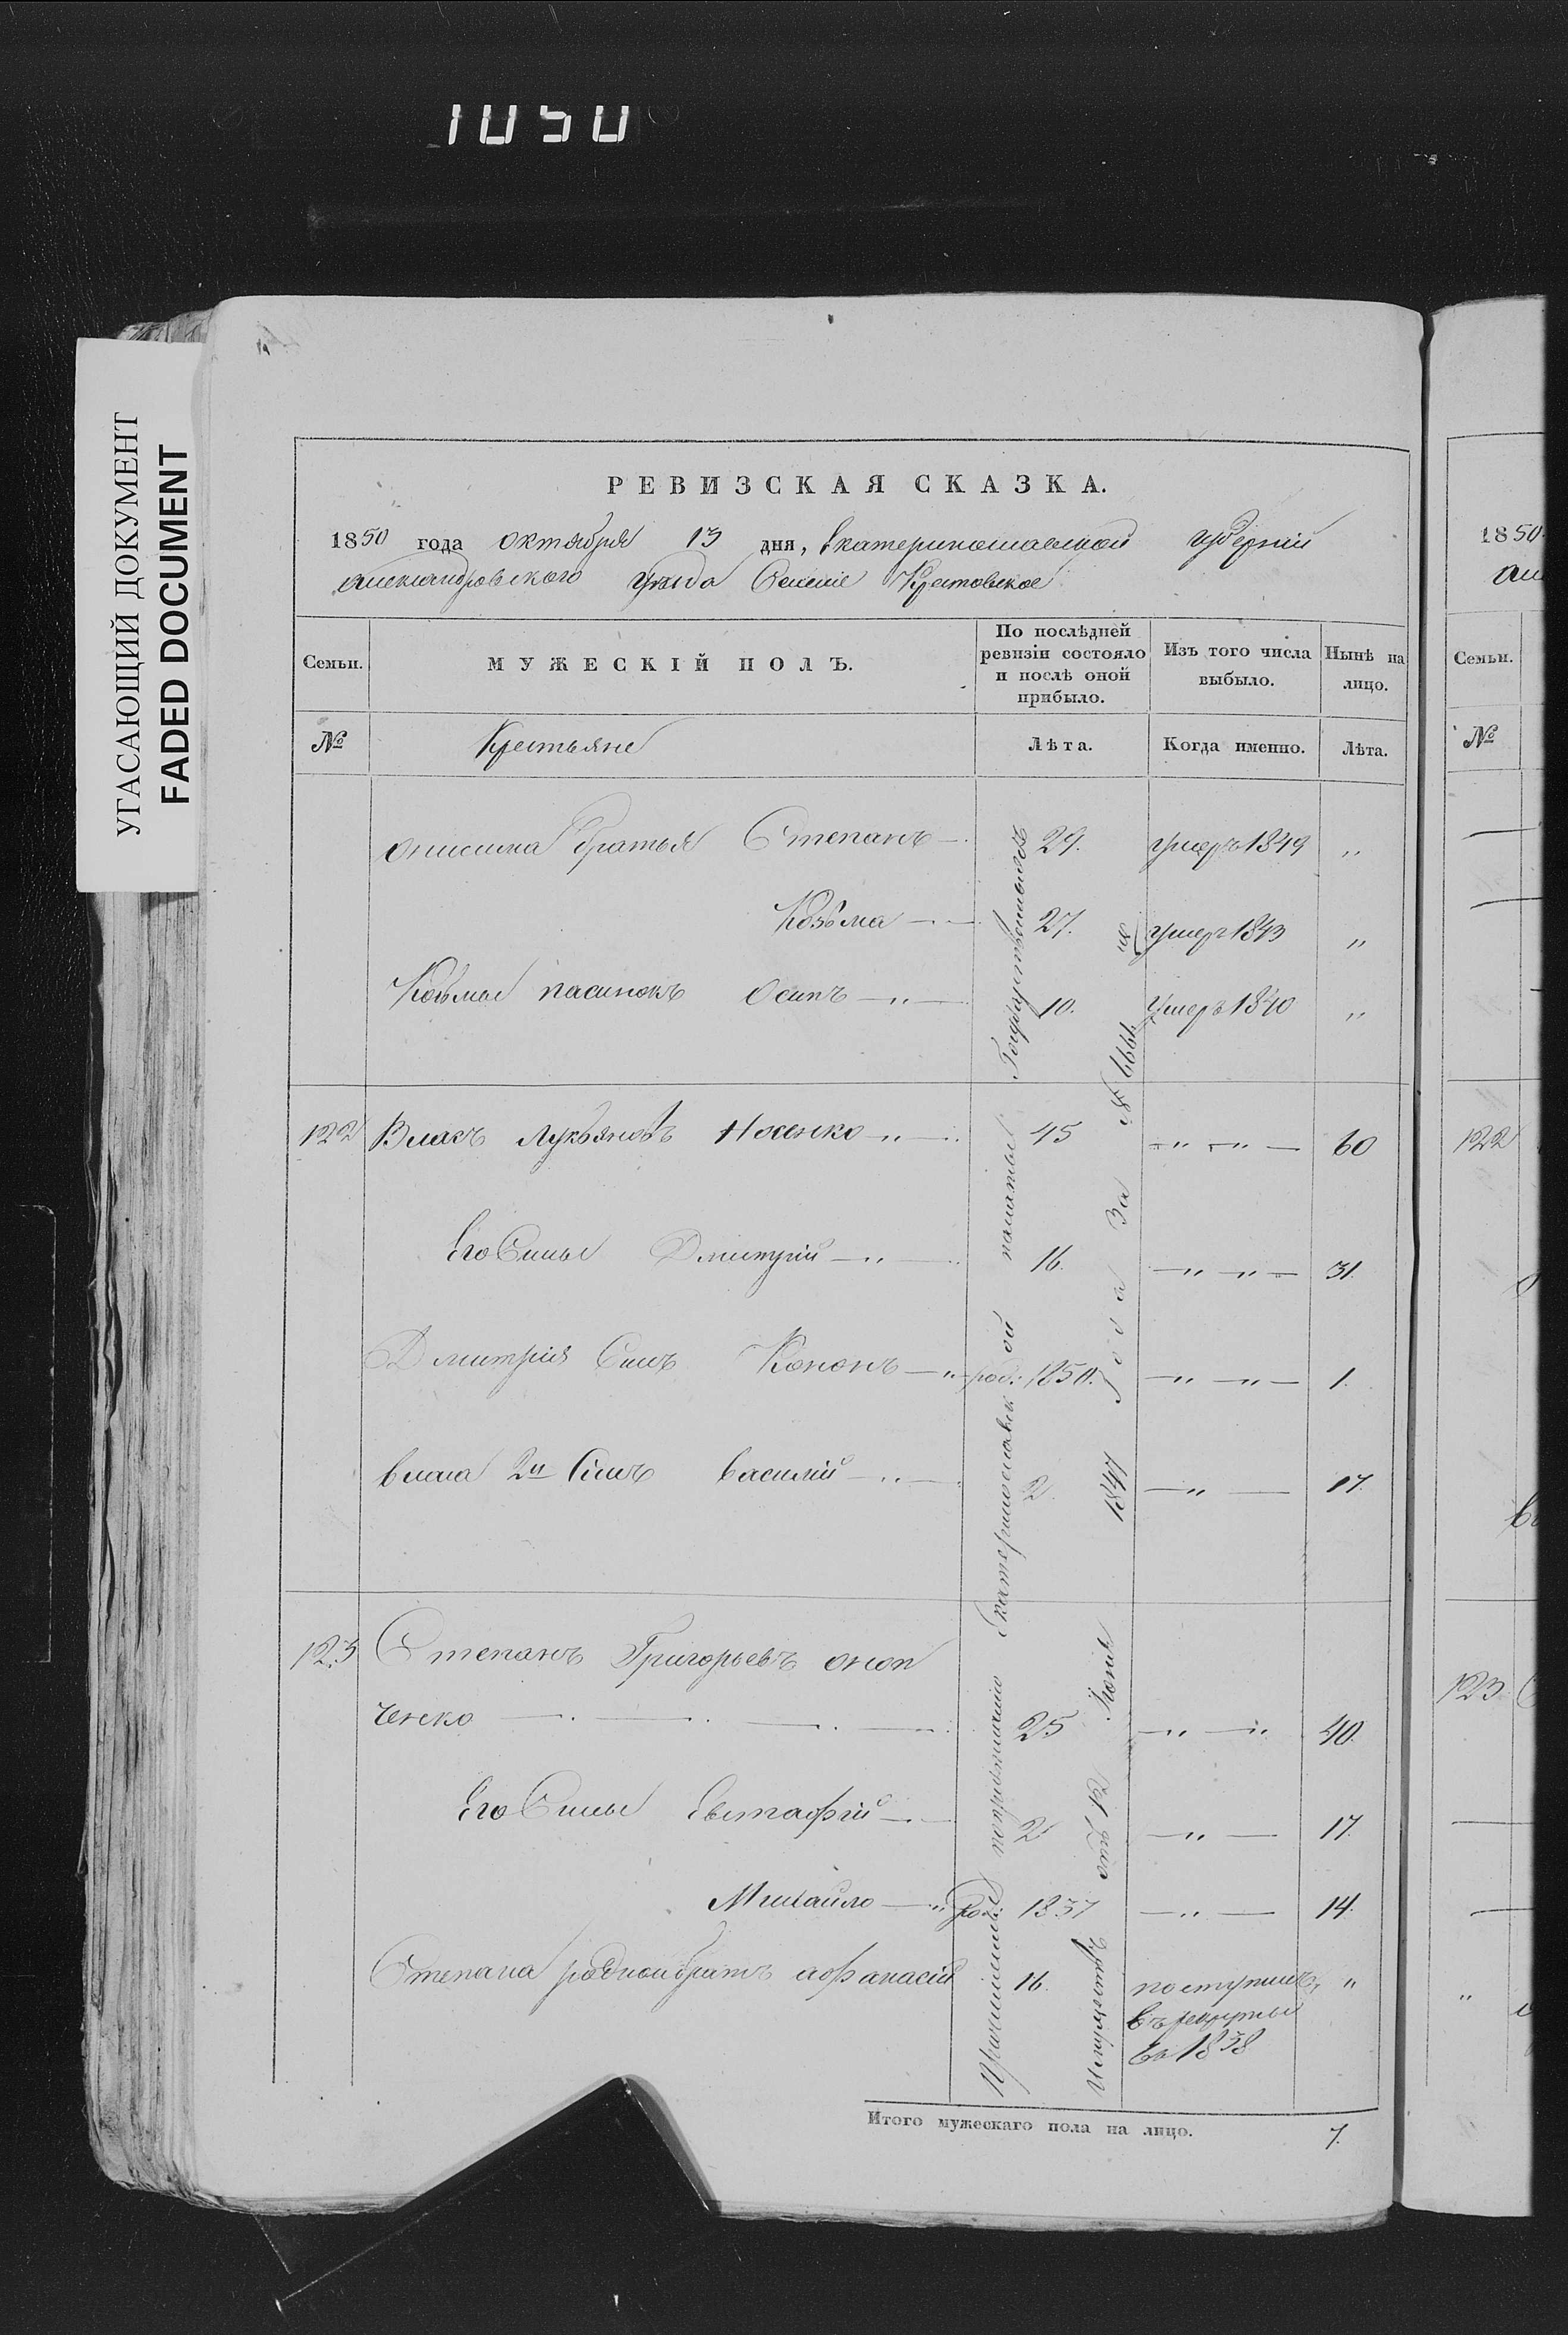 1050
УГАСАЮЩИЙ ДОКУМЕНТ
FADED DOCUMENT
РЕВИЗСКАЯ СКАЗКА.
1850 года октября 13 дня, Екатеринославской губерніи
Александровского уезда Селеніе Крестовское
Семьи. МУЖЕСКІЙ ПОЛЪ. По послѣдней ревизіи состояло и послѣ оной прибыло. Изъ того числа выбыло. Нынѣ на лицо.
№ Крестьяне Лѣта. Когда именно. Лѣта.
Онисима братья Степанъ — 29. умеръ 1849 „
Козьма — 27. умеръ 1843 „
Козьмы пасинокъ Осипъ — „ — 10. Умеръ 1840 „
122 Власъ Лукьяновъ Носенко — „ — 45 — „ — „ — 60
Его Сины Дмитрій — „ — 16. — „ — „ — 31.
Дмитрія Синъ Кононъ — „ — род: 1850. — „ — „ — 1.
Власа 2й Синъ Василій — „ — 2. — „ — 17.
123 Степанъ Григорьевъ
ченко — . — . — . — . 25 — „ — „ 40.
Его Сины Евстафій — 2 — „ — 17.
Михайло — „ род: 1837 — „ — 14.
Степана родной братъ Афанасій 16. поступилъ „
въ рекруты
въ 1838
Причислены по предписанію Екатеринославской палаты Государственныхъ
отъ 12 1847 года за № 6664
Итого мужескаго пола на лицо. 7.
1850
Семьи.
№
122
123